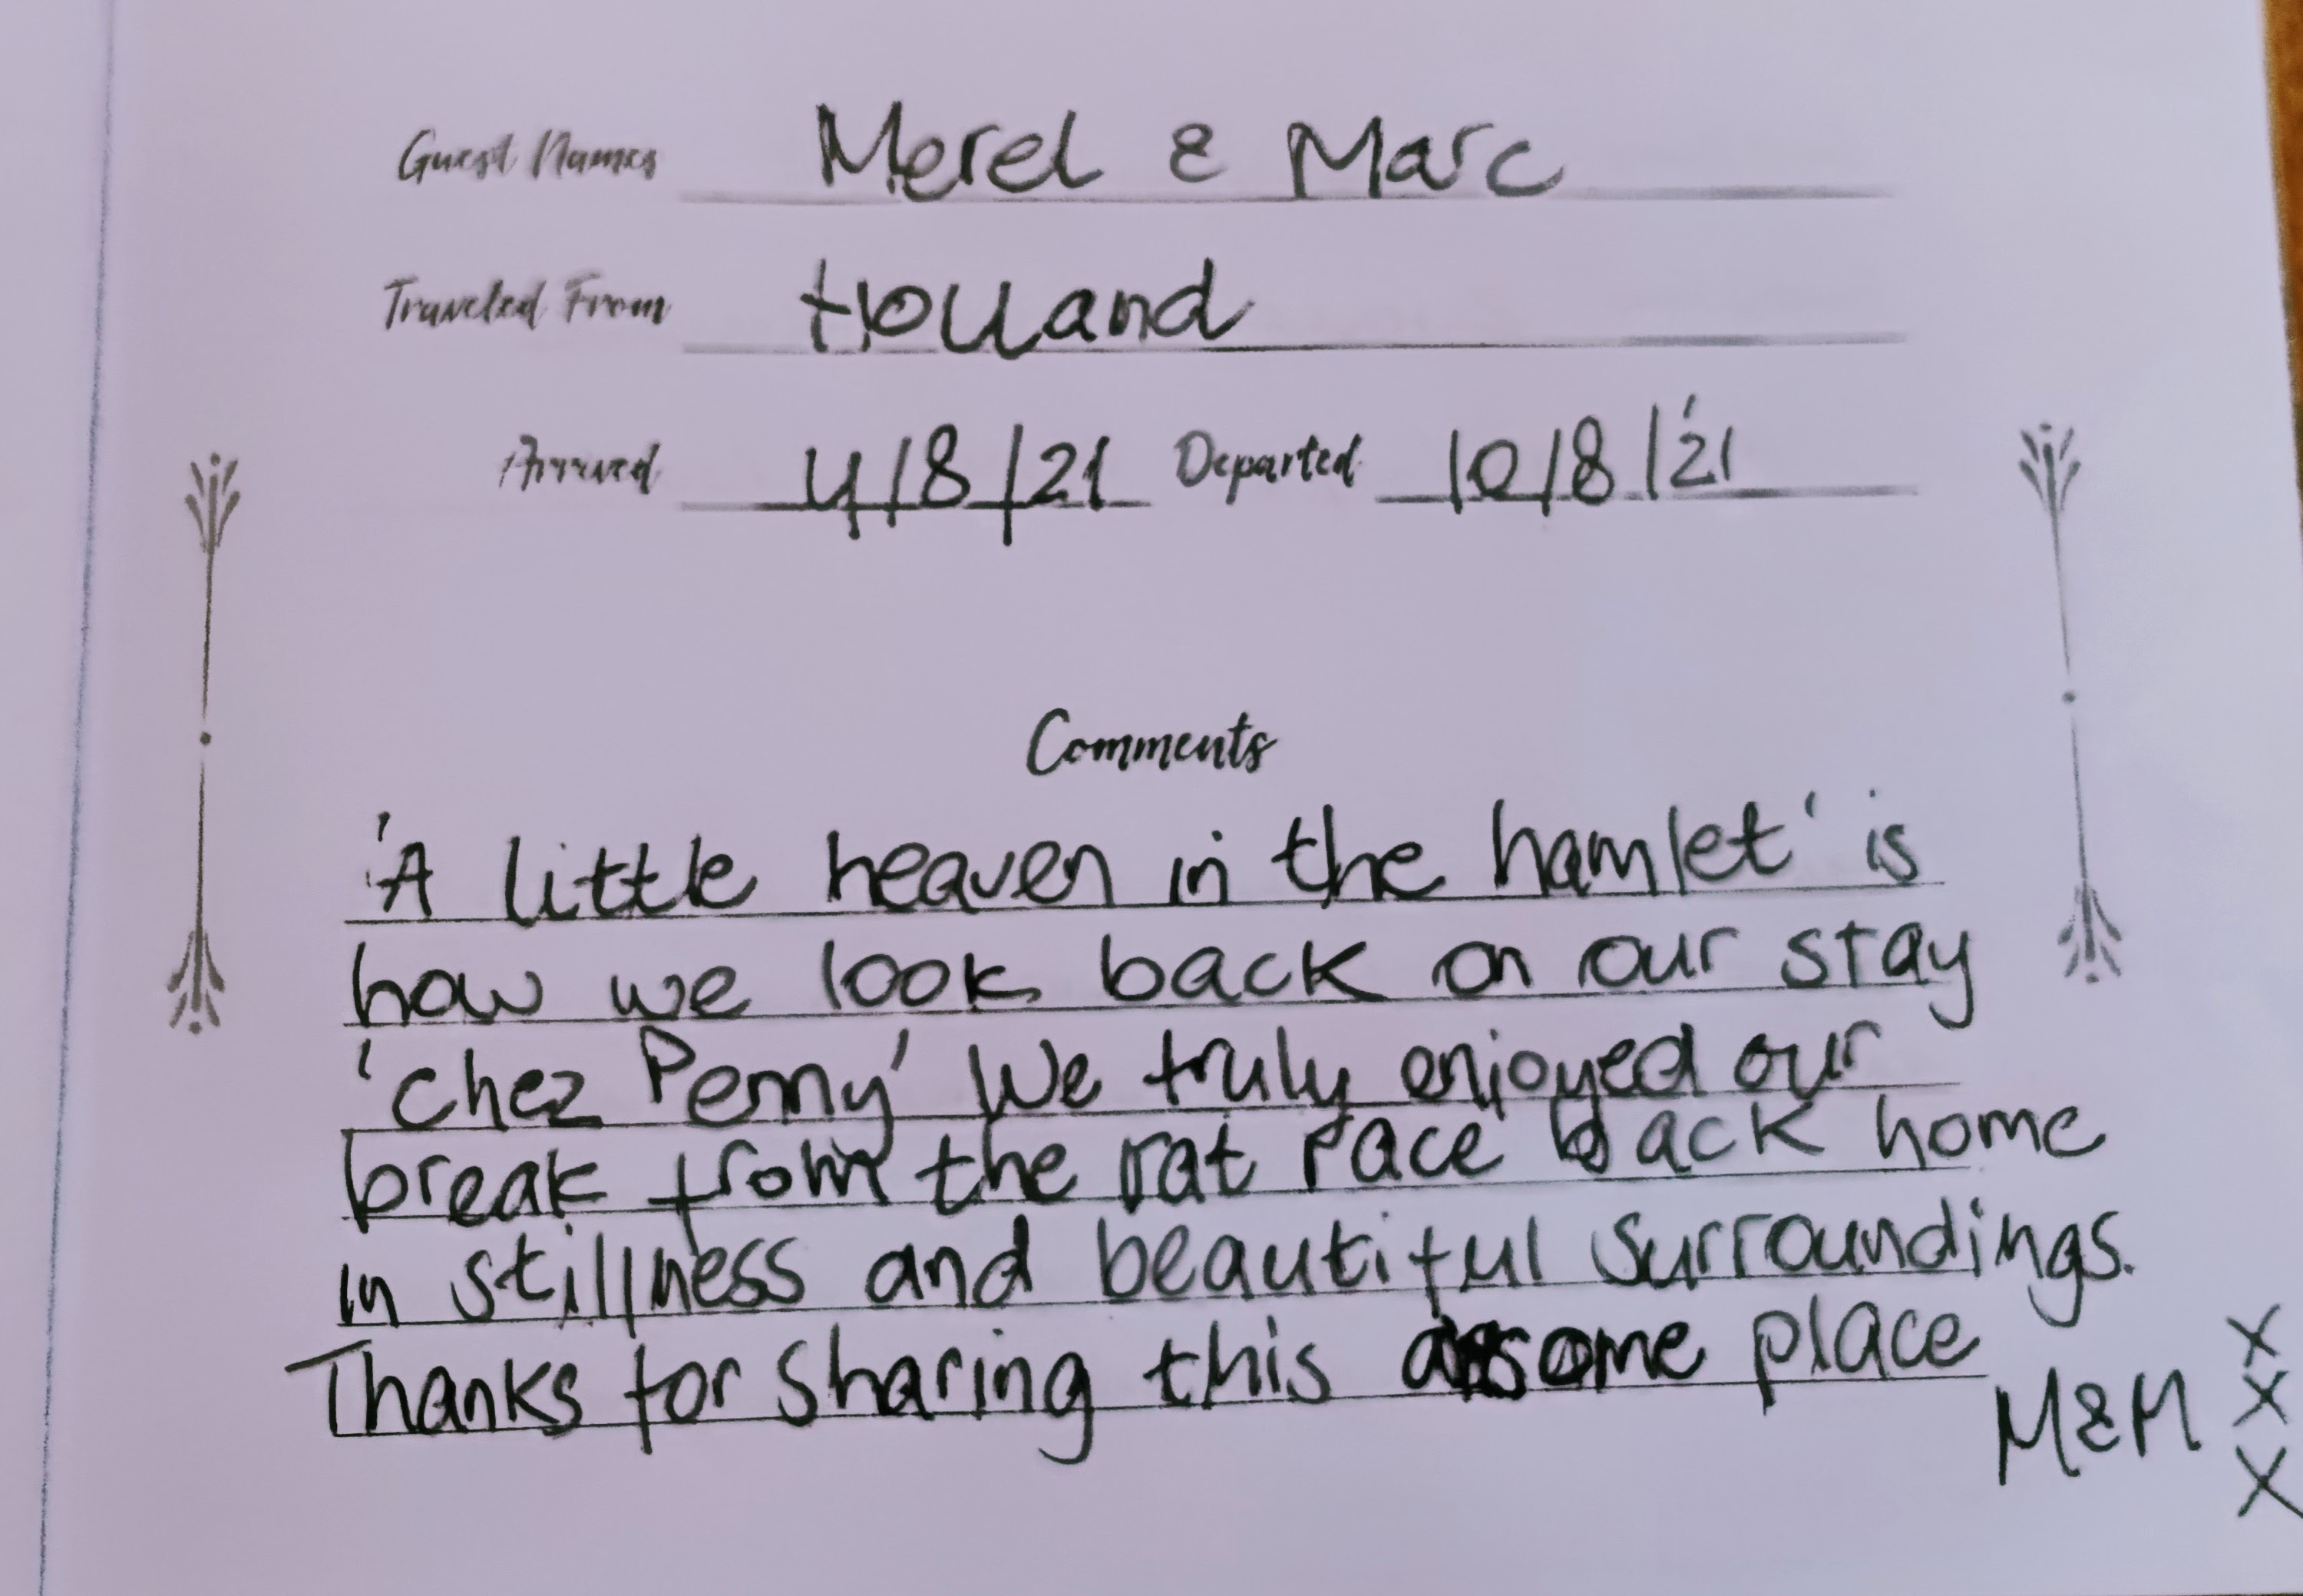 Guest Names Merel & Marc
Traveled From Holland
Arrived 4/8/21 Departed 10/8/'21
Comments
'A little heaven in the hamlet' is
how we look back on our stay
'chez Penny' We truly enjoyed our
break from the rat race back home
in stillness and beautiful surroundings.
Thanks for sharing this place
M&M XXX